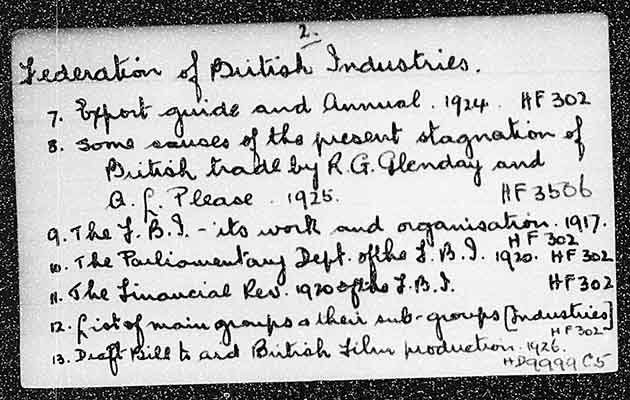 2.
Federation of British Industries.
7. Export guide and Annual. 1924. HF 302
8. Some causes of the present stagnation of
British trade by R.G. Glenday and
A. L. Please. 1925. HF 3506
9. The F.B.I. - its work and organisation. 1917.
HF 302
10. The Parliamentary Dept. of the F.B.I. 1920. HF 302
11. The Financial Rev. 1920 of the F.B.I. HF 302
12. List of main groups & their sub-groups [Industries]
HF 302
13. Draft Bill to aid British Film production. 1926.
HD9999 C5